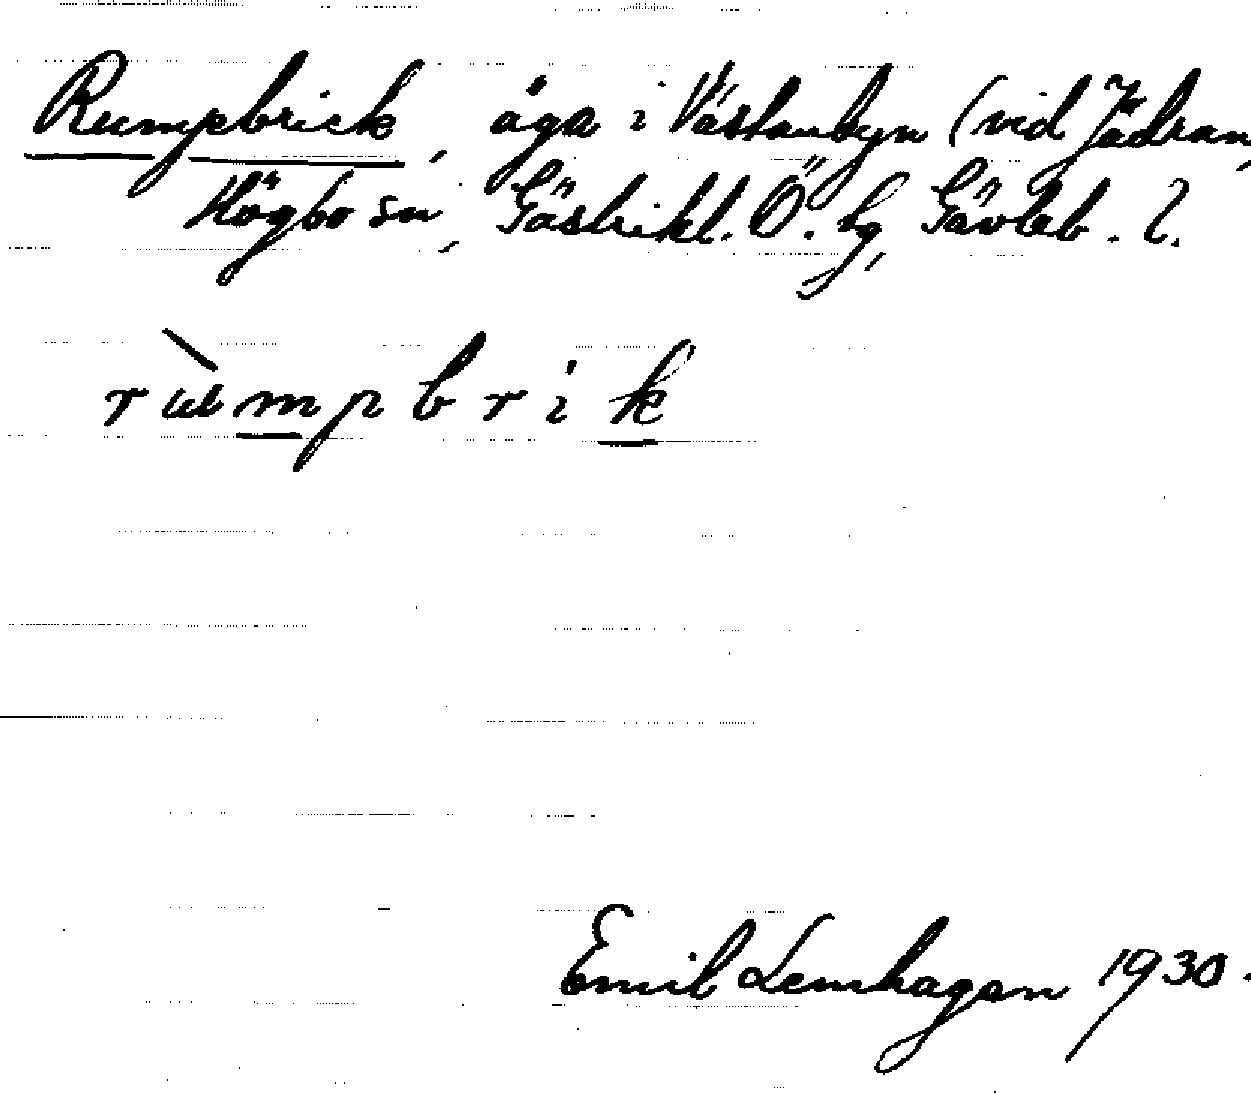 Rumpbrick, äga i Västanbyn (vid Jädran,
Högbo sn, Gästrikl. Ö. hg, Gävleb. l.
rùmpbrik
Emil Lemhagen 1930.